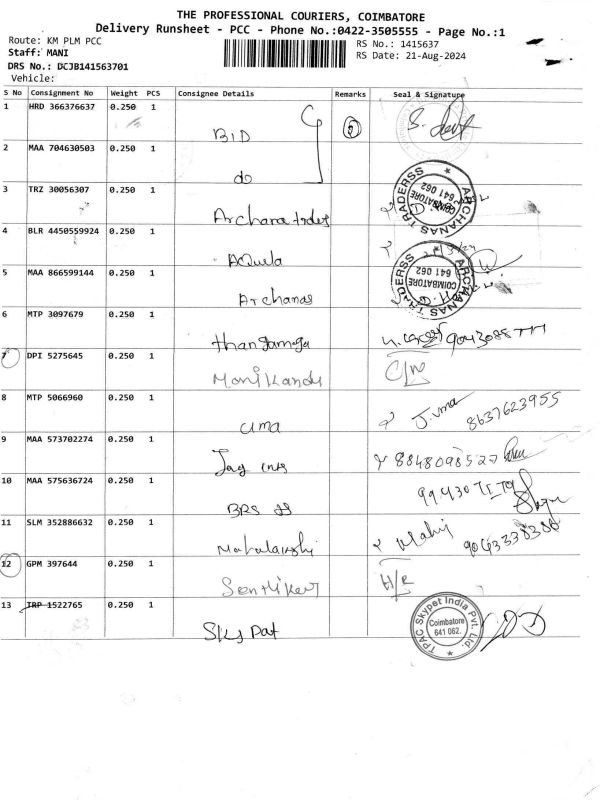 THE PROFESSIONAL COURIERS, COIMBATORE
Delivery Runsheet - PCC - Phone No.:0422-3505555 - Page No.:1
Route: KM PLM PCC
RS No.: 1415637
Staff: MANI
RS Date: 21-Aug-2024
DRS No.: DCJB141563701
Vehicle:
S No Consignment No Weight PCS Consignee Details Remarks Seal & Signature
1 HRD 366376637 0.250 1
BID
2 MAA 704630503 0.250 1
do
3 TRZ 30056307 0.250 1
ARCHANAS TRADERSS
COIMBATORE
641 062
4 BLR 4450559924 0.250 1
Aquela
5 MAA 866599144 0.250 1
Archanas
ARCHANAS TRADERSS
COIMBATORE
641 062
6 MTP 3097679 0.250 1
7 DPI 5275645 0.250 1
8 MTP 5066960 0.250 1
uma J. uma 8637623955
9 MAA 573702274 0.250 1
8848098527
10 MAA 575636724 0.250 1
BRS
11 SLM 352886632 0.250 1
9043338386
12 GPM 397644 0.250 1
13 TRP 1522765 0.250 1
Sky Pat
TPAC Skypet India Pvt. Ltd.
Coimbatore
641 062.